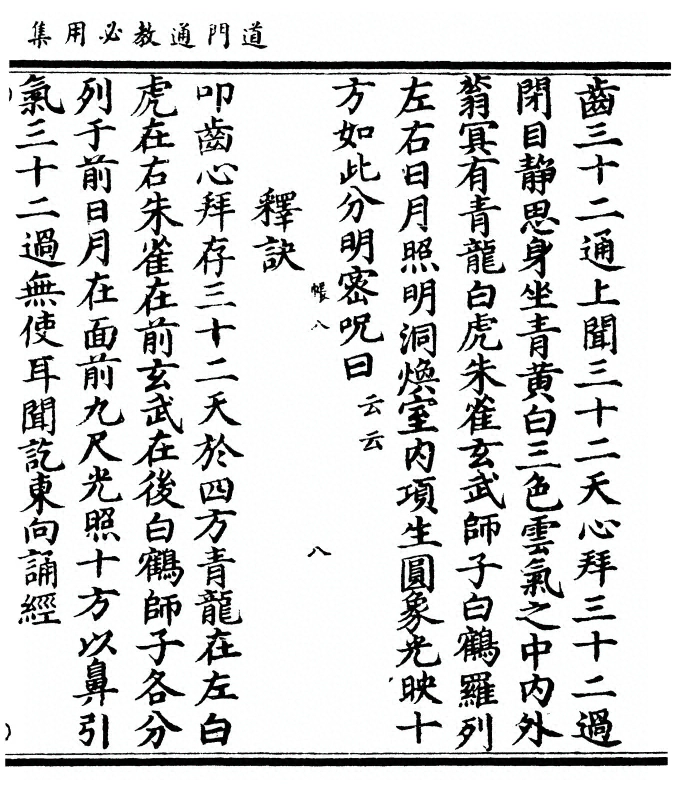 道門通教必用集
齒三十二通上聞三十二天心拜三十二過
閉目靜思身坐青黃白三色雲氣之中內外
蓊冥有青龍白虎朱雀玄武師子白鶴羅列
左右日月照明洞煥室內項生圓象光映十
方如此分明密呪曰云云
帳八
八
釋訣
叩齒心拜存三十二天於四方青龍在左白
虎在右朱雀在前玄武在後白鶴師子各分
列于前日月在面前九尺光照十方以鼻引
氣三十二過無使耳聞訖東向誦經